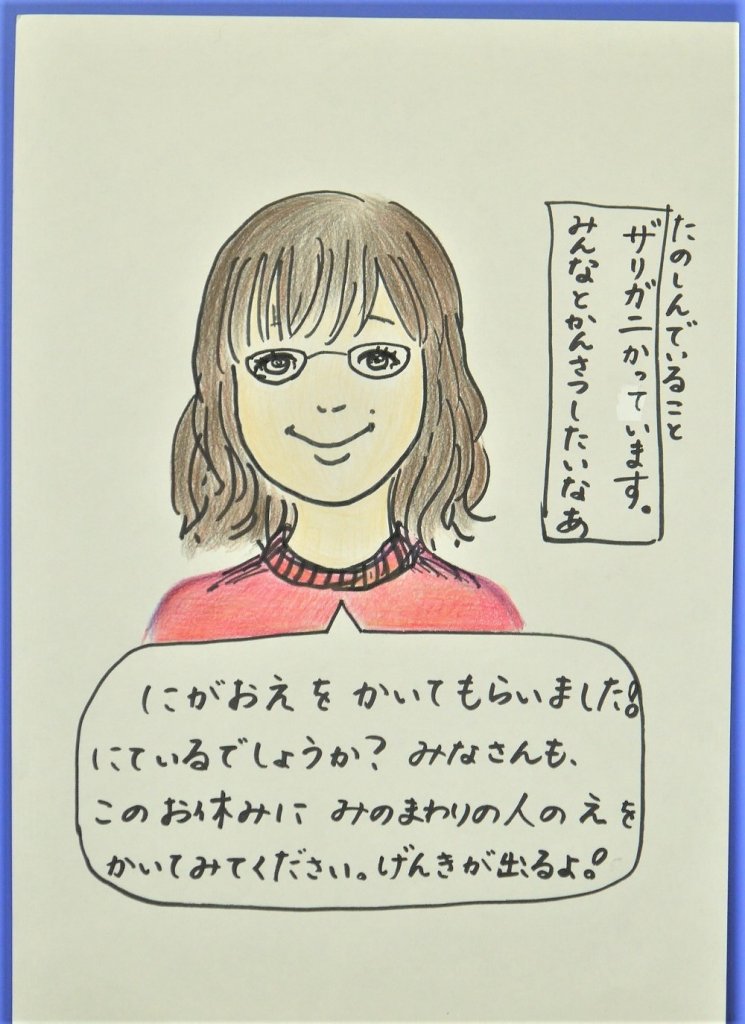 たのしんでいること
ザリガニかっています。
みんなとかんさつしたいなあ
にがおえを かいてもらいました!
にているでしょうか? みなさんも、
このお休みに みのまわりの人のえを
かいてみてください。げんきが出るよ!